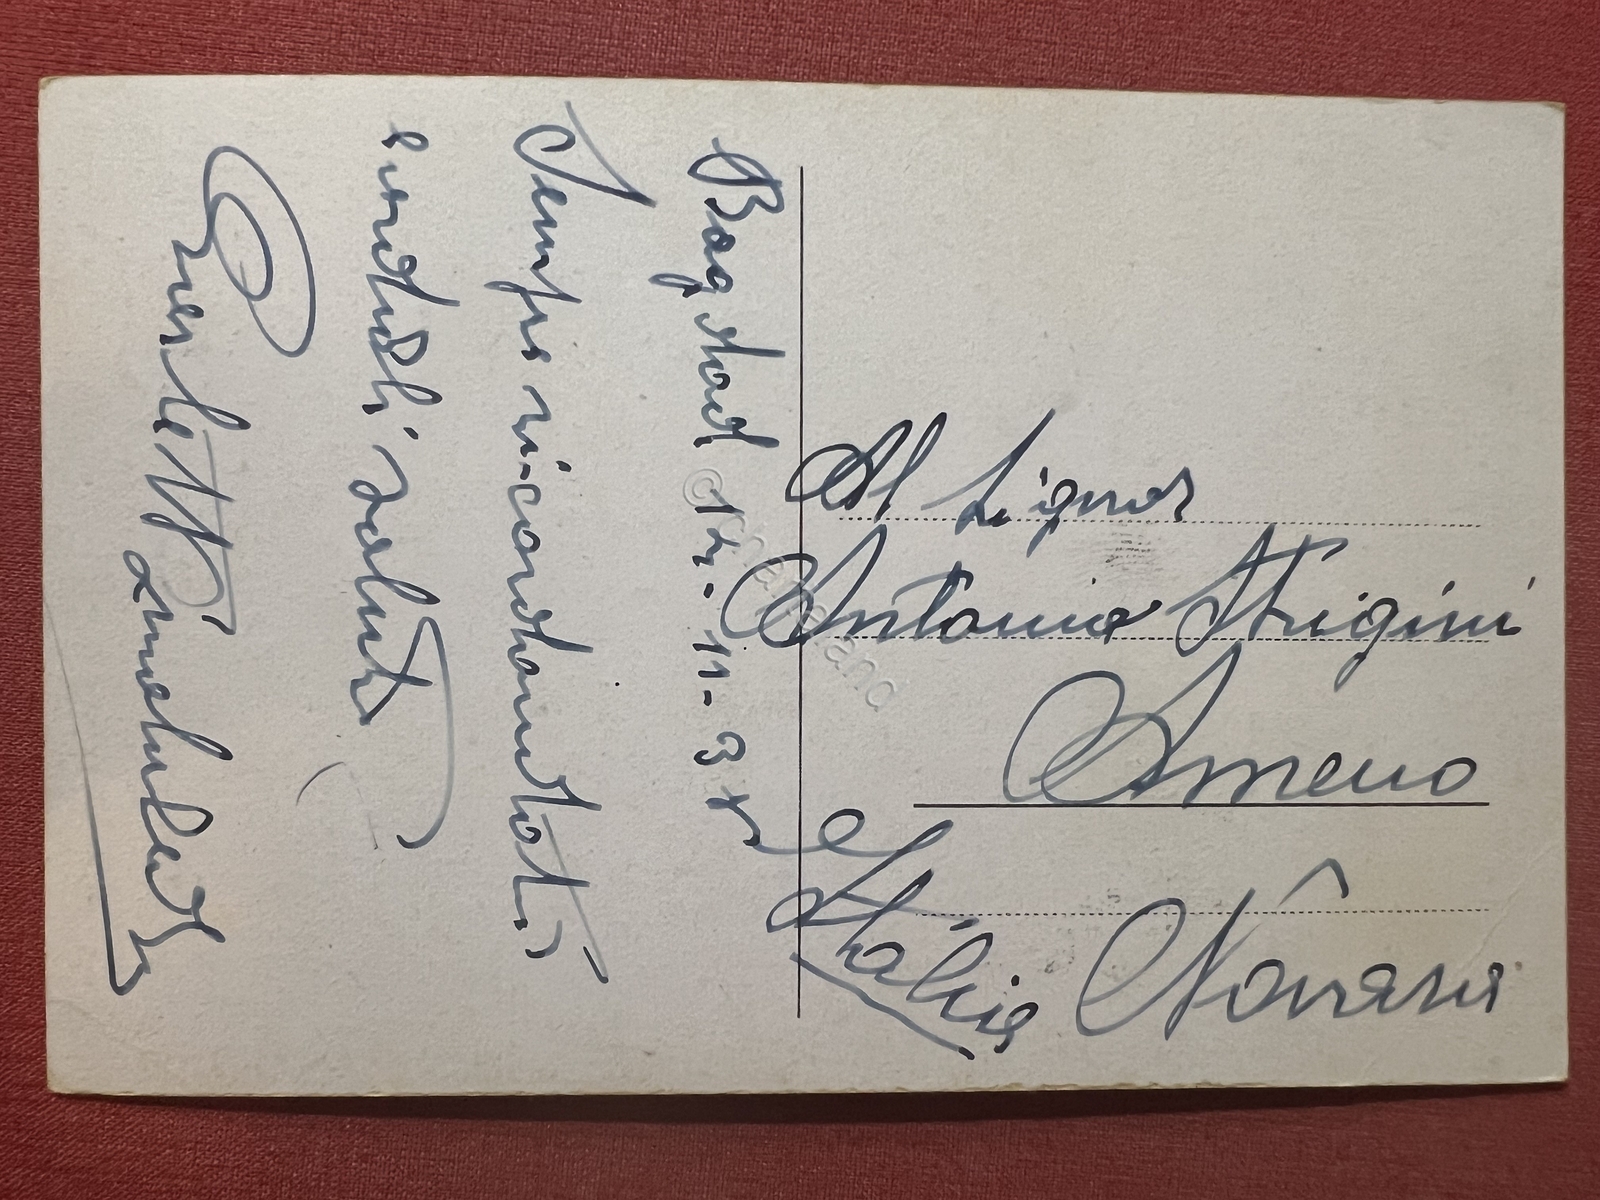 Bagdad 14-11-37
Sempre ricordandoti
cordiali saluti
Al Signor
Antonio Strigini
Ameno
Novara
Italia